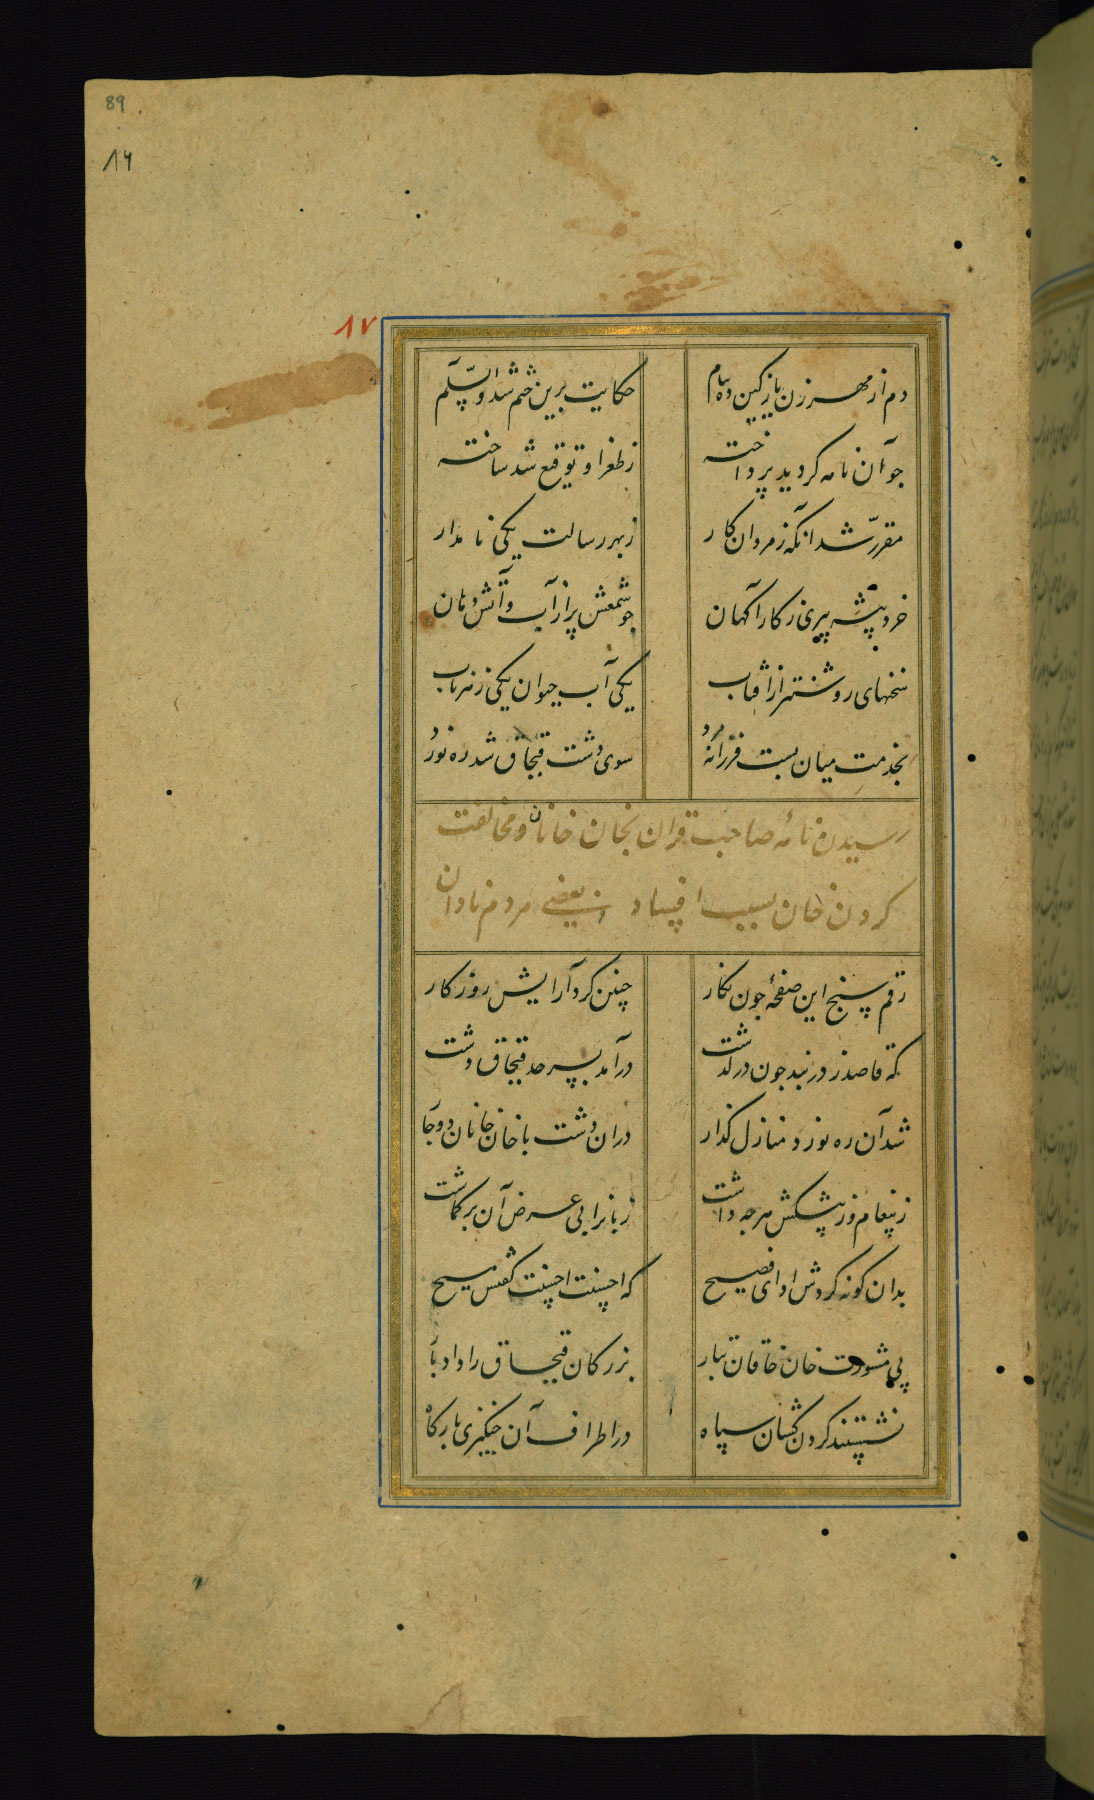 89
۸۶
۸۷
دم از مهر زن یا ز کین وه پیام
حکایت برین ختم شد والسّلم
جو آن نامه کردید پرداخته
ز طغرا و توقیع شد ساخته
مقرّر شد انکه ز مردان کار
ز بهر رسالت یکی نامدار
خرد پیشه پیری ز کار آکهان
جو شمعش پر از آب و آتش دهان
سخنهای روشنتر از آفتاب
یکی آب حیوان یکی زهر ناب
بخدمت میان بست فرزانه مرد
سوی دشت قبجاق شد ره نورد
رسیدن نامه صاحب قران بخان خانان و مخالفت
کردن خان بسبب افساد بعضی مردم نادان
رقم سنج این صفحهٔ جون نکار
چنین کرد آرایش روزکار
که قاصد ز دربند جون درکذشت
درآمد بسرحد قبجاق دشت
شد آن ره نورد منازل کذار
دران دشت با خان خانان دوچار
ز پیغام وز پیشکش هرجه داشت
زبانرا پی عرض آن برکماشت
بدان کونه کردش ادای فصیح
که احسنت احسنت کفتش مسیح
پی مشورت خان خاقان تبار
بزرکان قبجاق را داد بار
نشستند کردن کشان سپاه
در اطراف آن جنکیزی بارکاه